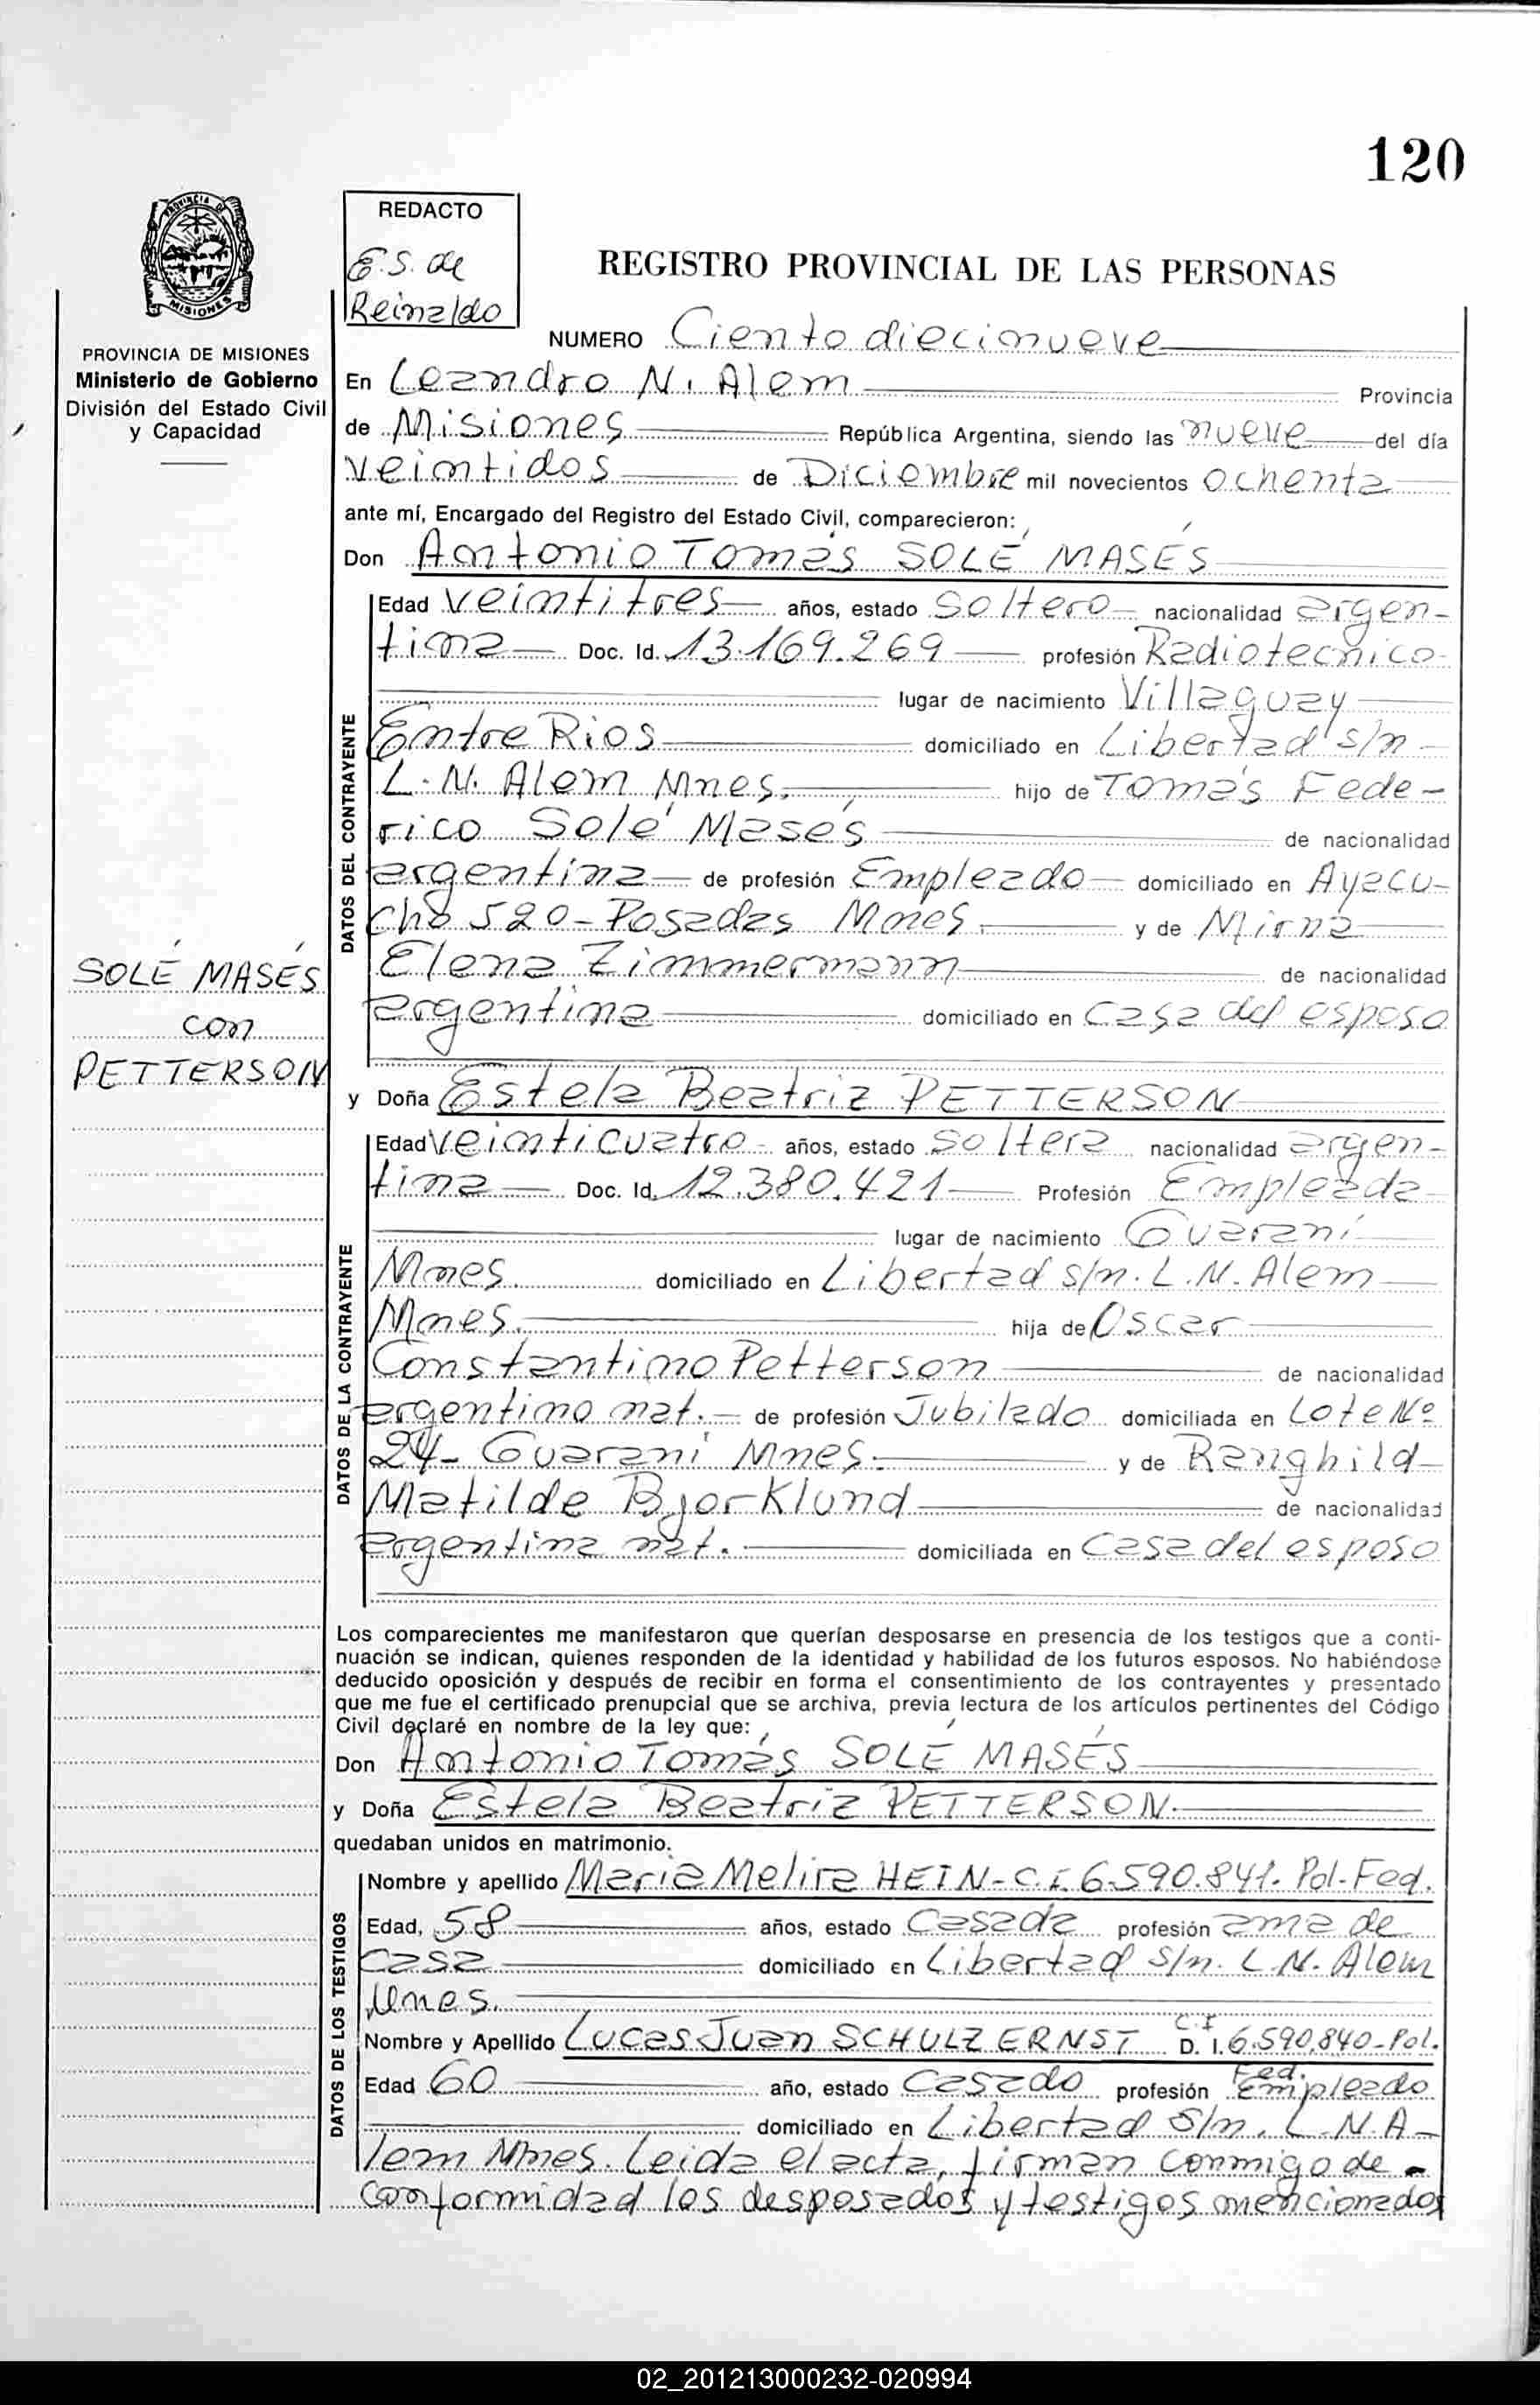 120
REDACTO
E.S. de
Reinaldo
REGISTRO PROVINCIAL DE LAS PERSONAS
PROVINCIA DE MISIONES
Ministerio de Gobierno
División del Estado Civil
y Capacidad
SOLÉ MASÉS
con
PETTERSON
NUMERO Ciento diecinueve
En Leandro N. Alem Provincia
de Misiones República Argentina, siendo las nueve del día
veintidos de Diciembre mil novecientos ochenta
ante mí, Encargado del Registro del Estado Civil, comparecieron:
Don Antonio Tomás SOLÉ MASÉS
DATOS DEL CONTRAYENTE
Edad veintitres años, estado Soltero nacionalidad argen-
tina Doc. Id. 13.169.269 profesión Radiotecnico
lugar de nacimiento Villaguay
Entre Rios domiciliado en Libertad s/n
L. N. Alem Mnes. hijo de Tomás Fede-
rico Solé Masés de nacionalidad
argentina de profesión Empleado domiciliado en Ayacu-
cho 520-Posadas Mnes. y de Mirna
Elena Zimmermann de nacionalidad
argentina domiciliado en casa del esposo
y Doña Estela Beatriz PETTERSON
DATOS DE LA CONTRAYENTE
Edad veinticuatro años, estado soltera nacionalidad argen-
tina Doc. Id. 12.380.421 Profesión Empleada
lugar de nacimiento Guaraní
Mnes. domiciliado en Libertad s/n. L.N. Alem
Mnes. hija de Oscar
Constantino Petterson de nacionalidad
argentino nat. de profesión Jubilado domiciliada en Lote Nº
24- Guaraní Mnes. y de Ranghild
Matilde Bjorklund de nacionalidad
argentina nat. domiciliada en casa del esposo
Los comparecientes me manifestaron que querían desposarse en presencia de los testigos que a conti-
nuación se indican, quienes responden de la identidad y habilidad de los futuros esposos. No habiéndose
deducido oposición y después de recibir en forma el consentimiento de los contrayentes y presentado
que me fue el certificado prenupcial que se archiva, previa lectura de los artículos pertinentes del Código
Civil declaré en nombre de la ley que:
Don Antonio Tomás SOLÉ MASÉS
y Doña Estela Beatriz PETTERSON.
quedaban unidos en matrimonio.
DATOS DE LOS TESTIGOS
Nombre y apellido Maria Melira HEIN-C.I. 6.590.841. Pol-Fed.
Edad, 58 años, estado Casada profesión ama de
casa domiciliado en Libertad s/n. L.N. Alem
Mnes.
Nombre y Apellido Lucas Juan SCHULZ ERNST C.I D. I. 6.590.840-Pol.
Fed.
Edad 60 año, estado Casado profesión Empleado
domiciliado en Libertad s/n. L.N.A-
lem Mnes. Leida el acta, firman conmigo de
conformidad los desposados y testigos mencionados
02_201213000232-020994